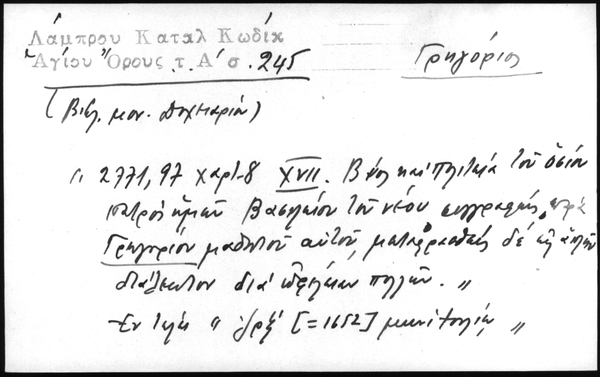 Λάμπρου Καταλ Κωδίκ
Ἁγίου Ὄρους τ. Α' σ. 245
Γρηγόριος
(Βιβλ. μον. Δοχειαρίου)
2771, 97 χαρτ. 8 XVII. Βίος καὶ πολιτεία τοῦ ὁσίου
πατρὸς ἡμῶν Βασιλείου τοῦ νέου συγγραφεὶς παρὰ
Γρηγορίου μαθητοῦ αὐτοῦ, μεταφρασθεὶς δὲ εἰς ἁπλῆν
διάλεκτον δι' ὠφέλειαν πολλῶν. "
Ἐν τέλει " [=1652] μηνὶ "